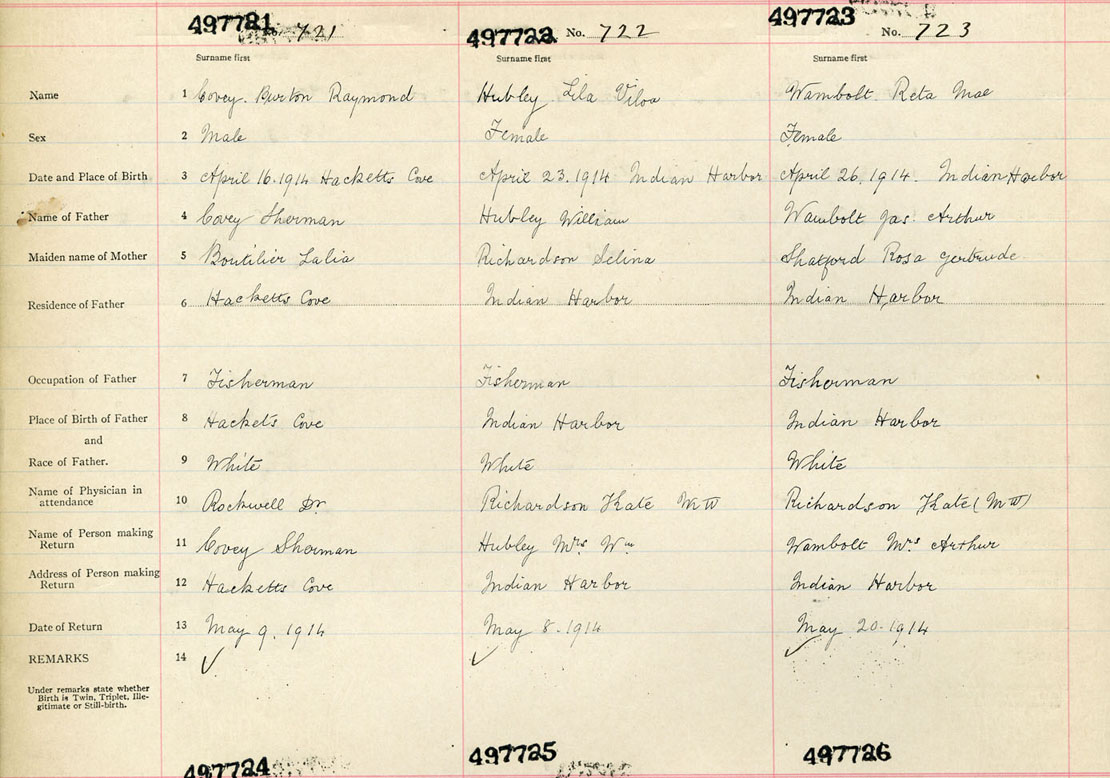 497721 497722 497723
721 No. 722 No. 723
Surname first Surname first Surname first
Name 1 Covey. Burton Raymond Hubley Lila Viloa Wambolt. Reta Mae
Sex 2 Male Female Female
Date and Place of Birth 3 April 16. 1914 Hacketts Cove April 23. 1914 Indian Harbor April 26. 1914. Indian Harbor
Name of Father 4 Covey Sherman Hubley William Wambolt Jas. Arthur
Maiden name of Mother 5 Boutilier Lalia Richardson Selina Shatford Rosa Gertrude
Residence of Father 6 Hacketts Cove Indian Harbor Indian Harbor
Occupation of Father 7 Fisherman Fisherman Fisherman
Place of Birth of Father 8 Hackets Cove Indian Harbor Indian Harbor
and
Race of Father. 9 White White White
Name of Physician in
attendance 10 Rockwell Dr Richardson Kate M W Richardson Kate (M W)
Name of Person making
Return 11 Covey Sherman Hubley Mrs Wm Wambolt Mrs Arthur
Address of Person making
Return 12 Hacketts Cove Indian Harbor Indian Harbor
Date of Return 13 May 9. 1914 May 8. 1914 May 20. 1914
REMARKS 14 ✓ ✓ ✓
Under remarks state whether
Birth is Twin, Triplet, Ille-
gitimate or Still-birth.
497724 497725 497726